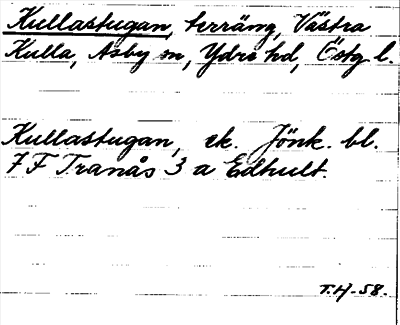 Kullastugan, terräng, Västra
Kulla, Asby sn, Ydre hd, Östg l.
Kullastugan, ek. Jönk. bl.
7 F Tranås 3 a Edhult.
T.H-58.